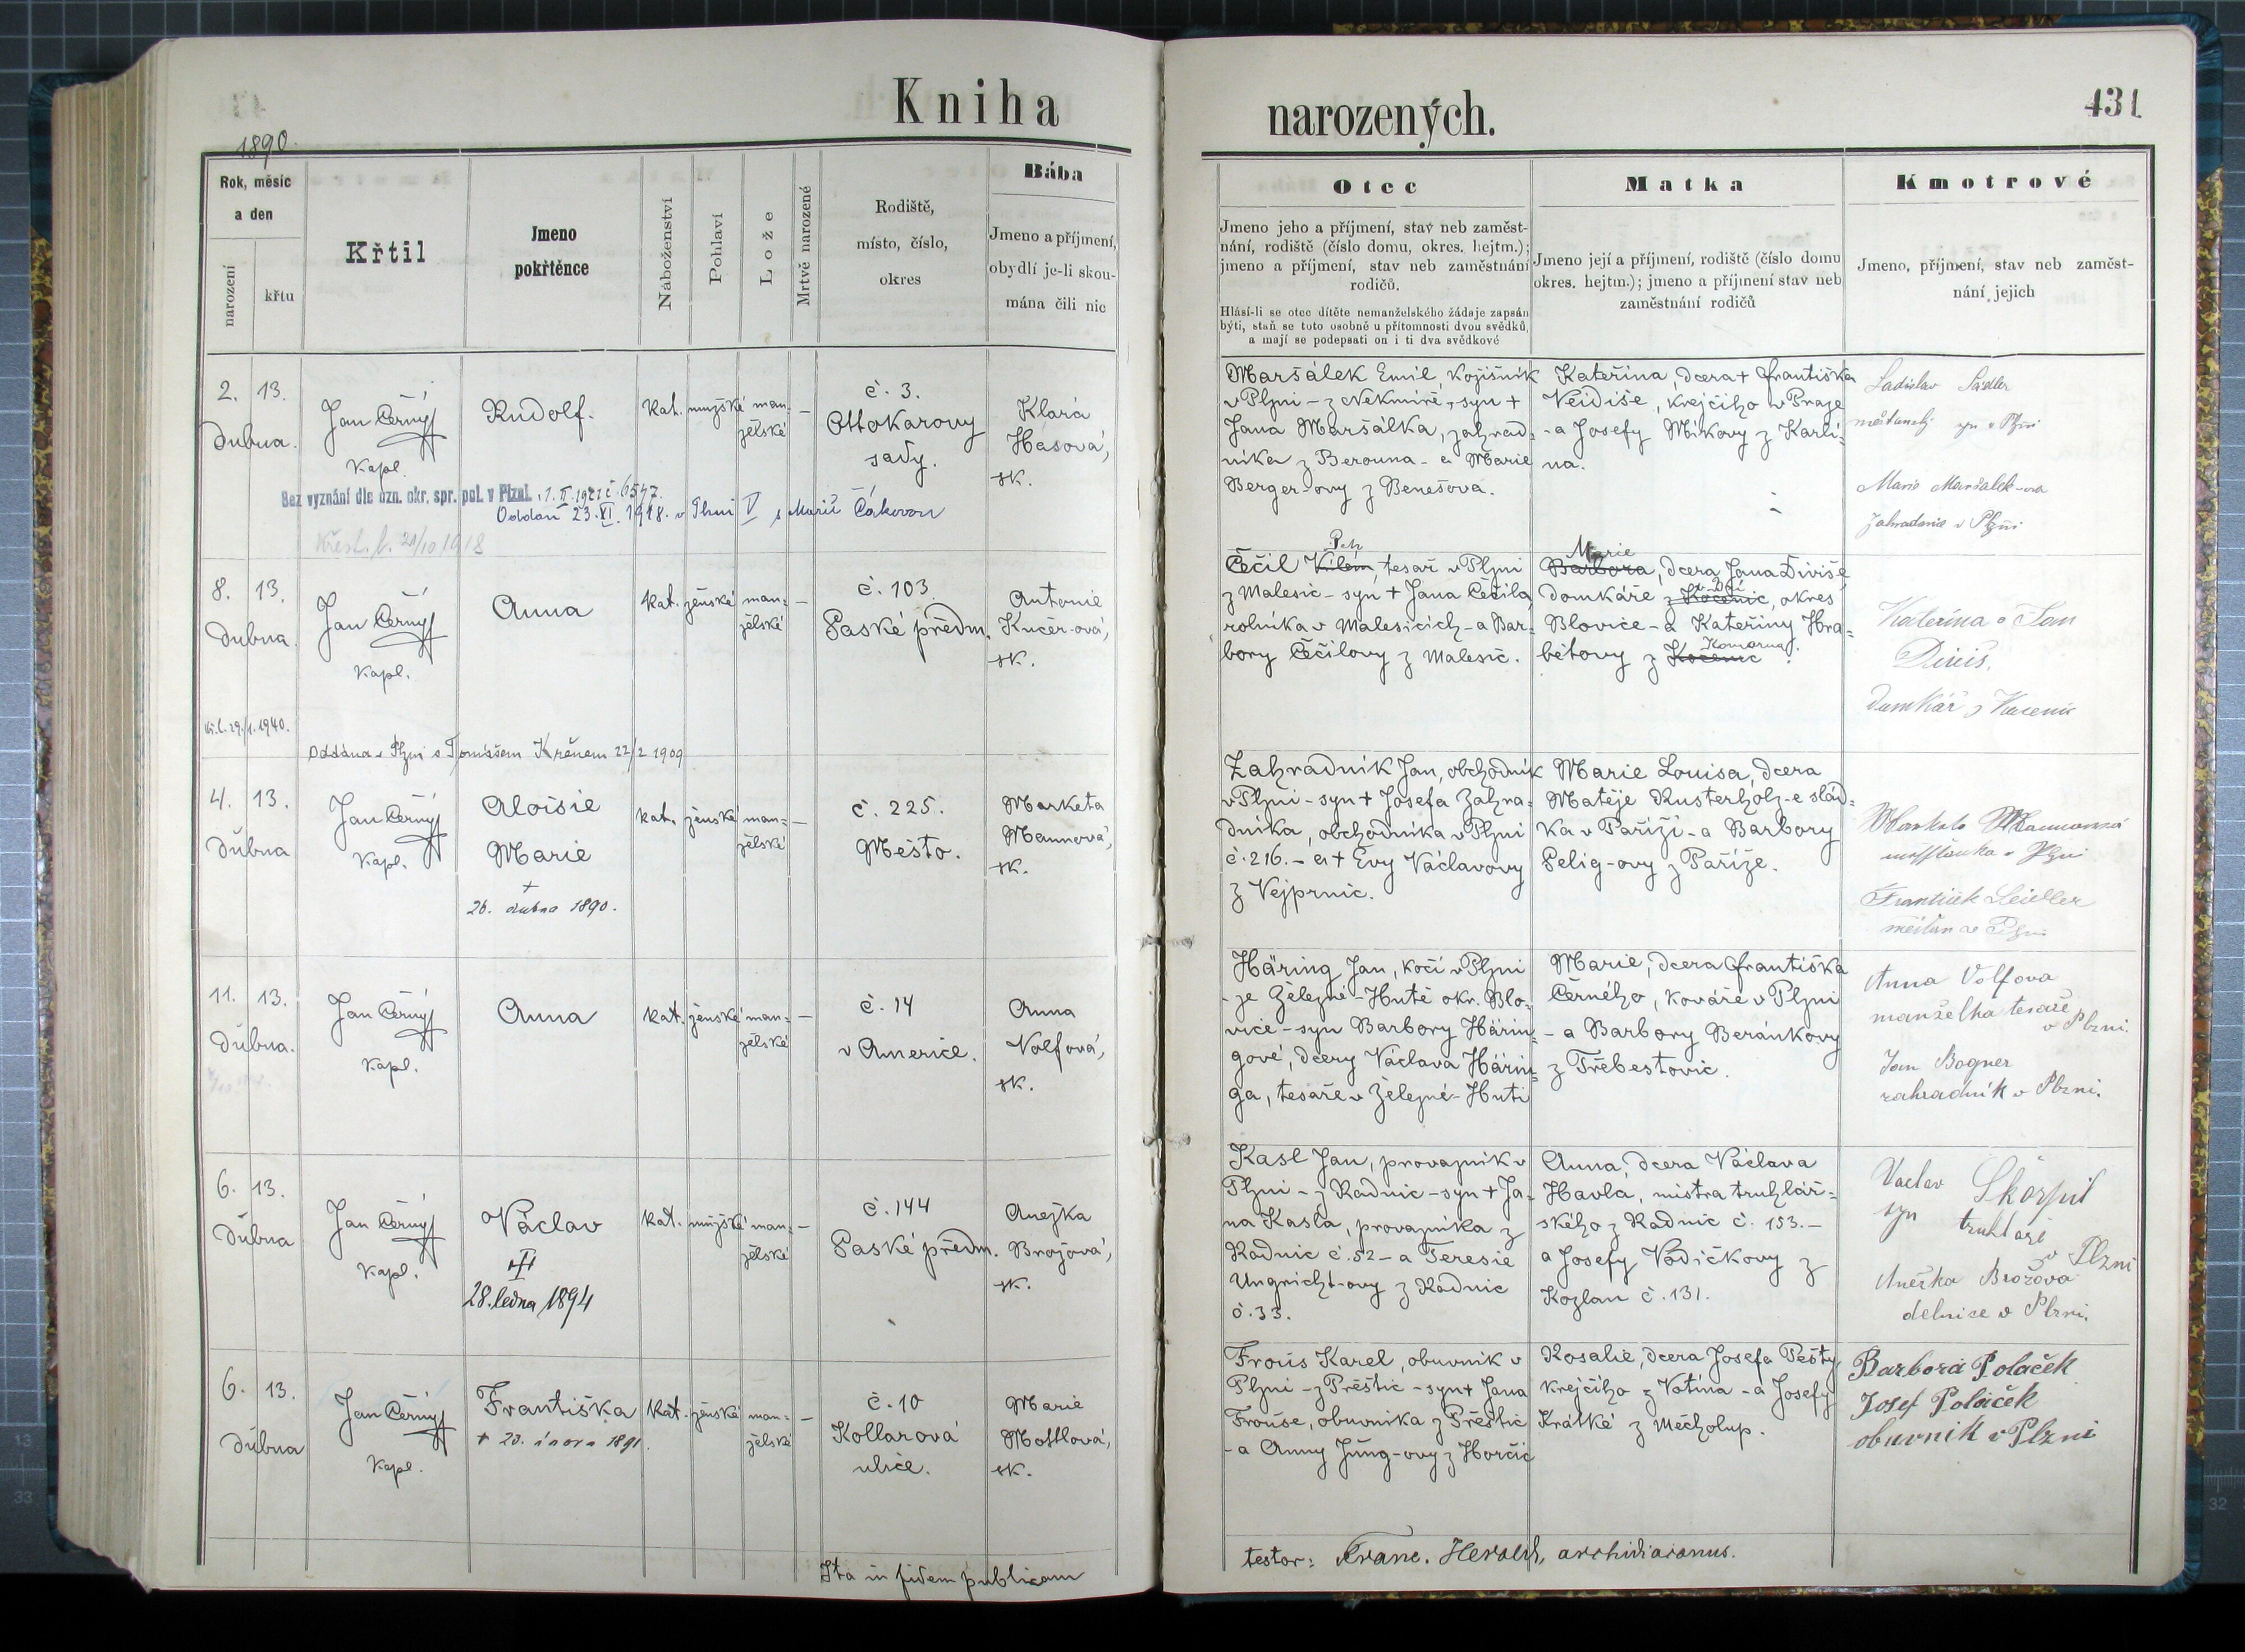 Kniha
narozených.
431
1890.
Rok, měsíc
a den
narození
křtu
Křtil
Jmeno
pokřtěnce
Náboženství
Pohlaví
Lože
Mrtvě narozené
Rodiště,
místo, číslo,
okres
Bába
Jmeno a příjmení,
obydlí je-li skou-
mána čili nic
Otec
Jmeno jeho a příjmení, stav neb zaměst-
nání, rodiště (číslo domu, okres. hejtm.);
jmeno a příjmení, stav neb zaměstnání
rodičů.
Hlásí-li se otec dítěte nemanželského žádaje zapsán
býti, staň se toto osobně u přítomnosti dvou svědků,
a mají se podepsati on i ti dva svědkové
Matka
Jmeno její a příjmení, rodiště (číslo domu
okres. hejtm.); jmeno a příjmení stav neb
zaměstnání rodičů
Kmotrové
Jmeno, příjmení, stav neb zaměst-
nání jejich
2. 13.
Dubna.
Jan Černý
Kapl.
Rudolf.
Kat.
mužské
man-
želské
–
č. 3.
Ottokarovy
sady.
Klara
Hasová,
sk.
Maršálek Emil, Kožišník
v Plzni - z Nekmíře, syn +
Jana Maršálka, zahrad-
níka z Berouna - a Marie
Berger-ovy z Benešova.
Kateřina, dcera + Františka
Neidiše, krejčího v Praze
- a Josefy Míkovy z Karlí-
na.
Ladislav Sádler
měšťanský syn v Plzni
Marie Maršálek-ová
zahradnice v Plzni
Bez vyznání dle ozn. okr. spr. pol. v Plzni. 1. II. 1921 č. 6547.
Oddán 23. XI. 1918. v Plzni V s Marií Čákovou
Křest. l. 21/10 1918
8. 13.
Dubna.
Jan Černý
Kapl.
Anna
Kat.
ženské
man-
želské
–
č. 103.
Pražské předm.
Antonie
Kučer-ová,
sk.
Petr
Čečil Vilém, tesař v Plzni
z Malesic - syn + Jana Čečila,
rolníka v Malesicích - a Bar-
bory Čečilovy z Malesic.
Marie
Barbora, dcera Jana Diviše,
domkáře z Kocenic, okres
Blovice - a Kateřiny Hra-
bětovy z Kocenic
Komorna.
Kateřina a Jan
Diviš,
Domkář z Kocenic
Kř. l. 29./1. 1940.
Oddána v Plzni s Tomášem Křenem 22/2 1909
4. 13.
Dubna
Jan Černý
Kapl.
Aloisie
Marie
+
26. dubna 1890.
kat.
ženské
man-
želské
–
č. 225.
Město.
Marketa
Mannová,
sk.
Zahradník Jan, obchodník
v Plzni - syn + Josefa Zahra-
dníka, obchodníka v Plzni
č. 216. - a + Evy Václavovy
z Vejprnic.
Marie Louisa, dcera
Matěje Rusterholz-e slád-
ka v Paříži - a Barbory
Pelig-ovy z Paříže.
František Seidler
měšťan v Plzni
11. 13.
Dubna.
Jan Černý
Kapl.
Anna
kat.
ženské
man-
želské
–
č. 14
v Americe.
Anna
Volfová,
sk.
Häring Jan, kočí v Plzni
- ze Železné-Hutě okr. Blo-
vice - syn Barbory Härin-
gové, dcery Václava Härin-
ga, tesaře v Železné-Huti
Marie, dcera Františka
Černého, kováře v Plzni
- a Barbory Beránkovy
z Třebestovic.
Anna Volfova
manželka tesaře
v Plzni.
Jan Bogner
zahradník v Plzni.
6. 13.
Dubna
Jan Černý
Kapl.
Václav
28. ledna 1894
kat.
mužské
man-
želské
–
č. 144
Pražské předm.
Anežka
Brožová,
sk.
Kasl Jan, provazník v
Plzni - z Radnic - syn + Ja-
na Kasla, provazníka z
Radnic č. 52 - a Teresie
Ungricht-ovy z Radnic
č. 33.
Anna, dcera Václava
Havla, mistra truhlář-
ského z Radnic č. 153. -
a Josefy Vodičkovy z
Kozlan č. 131.
Vaclav Škorpil
syn truhlaře
v Plzni
Anežka Brožova
delnice v Plzni.
6. 13.
Dubna
Jan Černý
Kapl.
Františka
+ 20. února 1891.
Kat.
ženské
man-
želské
–
č. 10
Kollarová
ulice.
Marie
Mottlová,
sk.
Frouš Karel, obuvník v
Plzni - z Přeštic - syn + Jana
Frouše, obuvníka z Přeštic
- a Anny Jung-ovy z Horčic
Rosalie, dcera Josefa Pešty,
krejčího z Votína - a Josefy
Krátké z Mecholup.
Barbora Polaček
Josef Polaček
obuvnik v Plzni
Ita in fidem publicam
testor: Franc. Herold, archidiaconus.